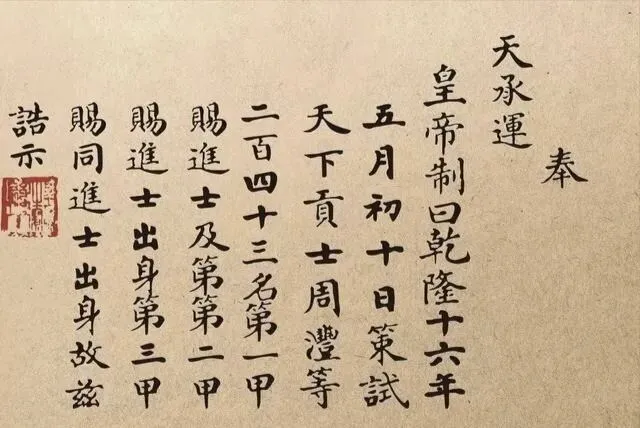 奉
天承運
皇帝制曰乾隆十六年
五月初十日策試
天下貢士周灃等
二百四十三名第一甲
賜進士及第第二甲
賜進士出身第三甲
賜同進士出身故茲
誥示